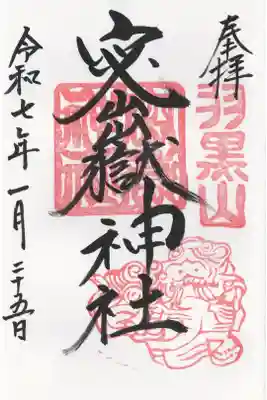 奉拝
羽黒山
密嶽神社
令和七年一月二十五日